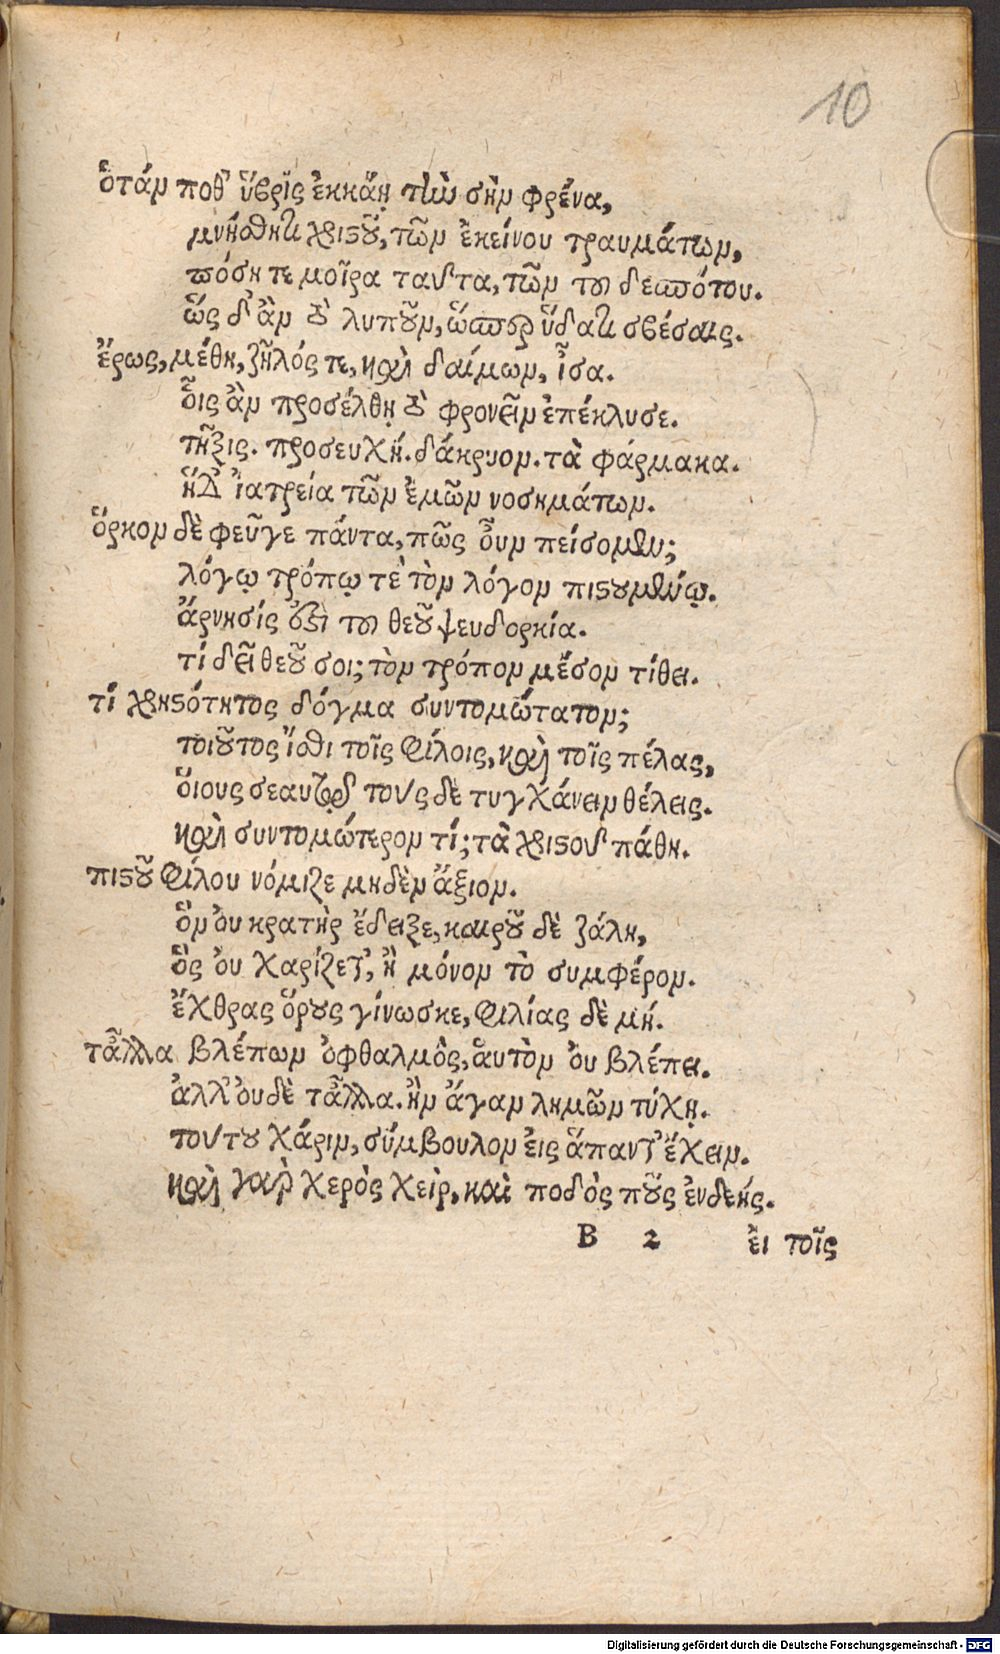 10
ὅτάν ποθ' ὕβρῖς ἐκκάῃ τὼ σὴν φρένα,
μνήσθητι χριστοῦ, τῶν ἐκείνου τραυμάτων,
πόση τε μοῖρα ταῦτα, τῶν του δεσπότου.
ὥς δ' ἂν τὸ λυποῦν, ὥσπερ ὕδατι σβέσαις.
ἔρως, μέθη, ζῆλός τε, καὶ δαίμων, ἶσα.
οἷς ἂν προσέλθῃ τὸ φρονεῖν ἐπέκλυσε.
τῆξις. προσευχή. δάκρυον. τὰ φάρμακα.
ἥδ' ἰατρεία τῶν ἐμῶν νοσημάτων.
ὅρκον δὲ φεῦγε πάντα, πῶς οὖν πείσομεν;
λόγῳ τρόπῳ τὲ τὸν λόγον πιστουμένῳ.
ἄρνησίς ἐστι του θεοῦ ψευδορκία.
τί δεῖ θεοῦ σοι; τὸν τρόπον μέσον τίθει.
τί χρηστότητος δόγμα συντομώτατον;
τοιοῦτος ἴσθι τοῖς φίλοις, καὶ τοῖς πέλας,
ὅιους σεαυτῷ τούς δὲ τυγχάνειν θέλεις.
καὶ συντομώτερον τί; τὰ χριστοῦ πάθη.
πιστοῦ φίλου νόμιζε μηδὲν ἄξιον.
ὃν ὀυ κρατὴρ ἔδειξε, καιροῦ δὲ ζάλη,
ὃς ὀυ χαρίζετ', ἢ μόνον τὸ συμφέρον.
ἔχθρας ὅρους γίνωσκε, φιλίας δὲ μή.
τἆλλα βλέπων ὀφθαλμὸς, ἁυτὸν ὀυ βλέπει.
ἀλλ' ὀυδὲ τἆλλα. ἢν ἄγαν λημῶν τύχῃ.
τούτου χάριν, σύμβουλον ἐις ἅπαντ' ἔχειν.
καὶ γαρ χερὸς χείρ, καὶ ποδὸς ποῦς ἐνδεής.
B 2 ἐι τοῖς
Digitalisierung gefördert durch die Deutsche Forschungsgemeinschaft - DFG